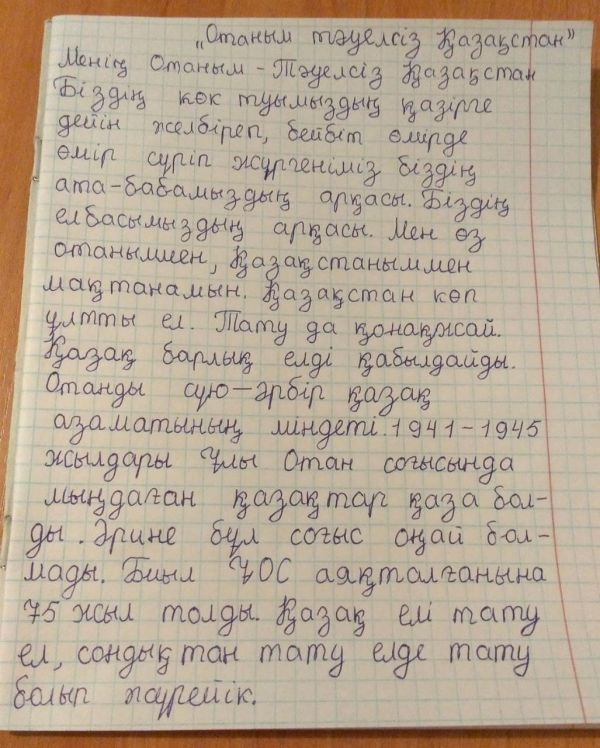 „Отаным тәуелсіз Қазақстан"
Менің Отаным - Тәуелсіз Қазақстан
Біздің көк туымыздың қазірге
дейін желбіреп, бейбіт өмірде
өмір сүріп жүргеніміз біздің
ата-бабамыздың арқасы. Біздің
елбасымыздың арқасы. Мен өз
отаныммен, Қазақстаныммен
мақтанамын. Қазақстан көп
ұлтты ел. Тату да қонақжай.
Қазақ барлық елді қабылдайды.
Отанды сүю—әрбір қазақ
азаматының міндеті. 1941-1945
жылдары Ұлы Отан соғысында
мыңдаған қазақтар қаза бол-
ды. Әрине бұл соғыс оңай бол-
мады. Биыл ҰОС аяқталғанына
75 жыл толды. Қазақ елі тату
ел, сондықтан тату елде тату
болып жүрейік.